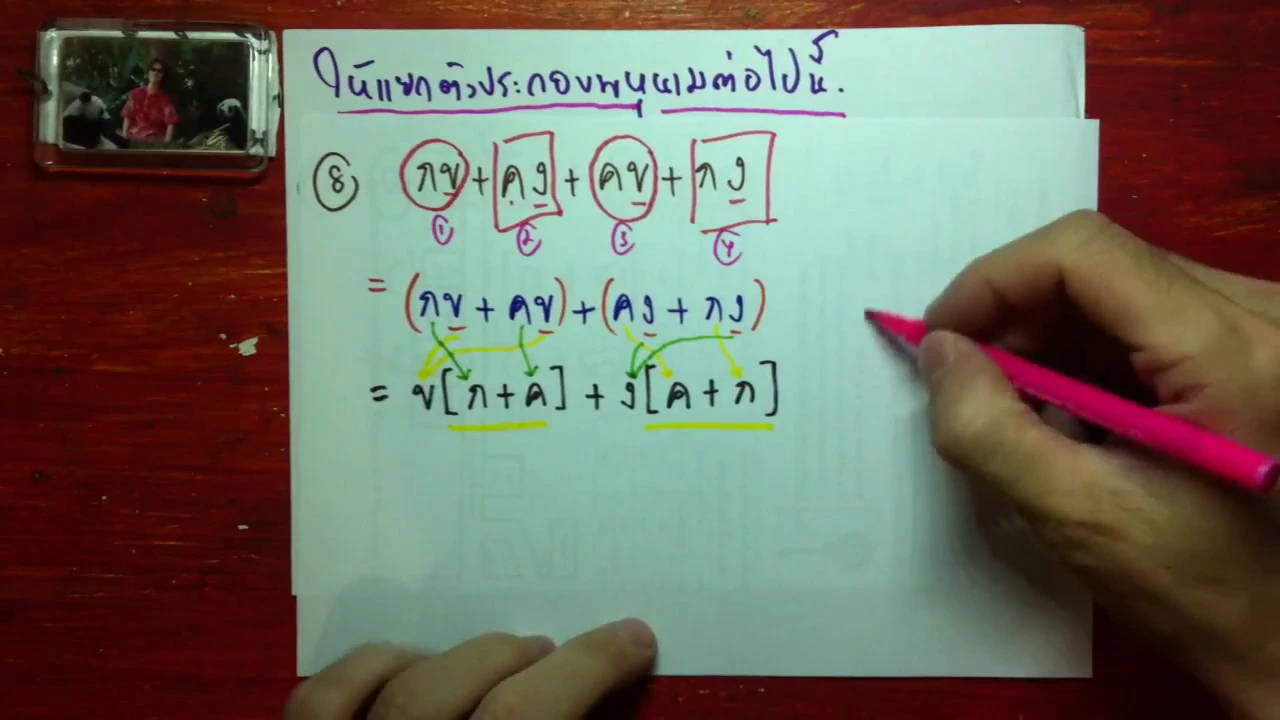 ให้แยกตัวประกอบพหุนามต่อไปนี้.
8 กข + คง + คข + กง
① ② ③ ④
= (กข + คข) + (คง + กง)
= ข[ก + ค] + ง[ค + ก]